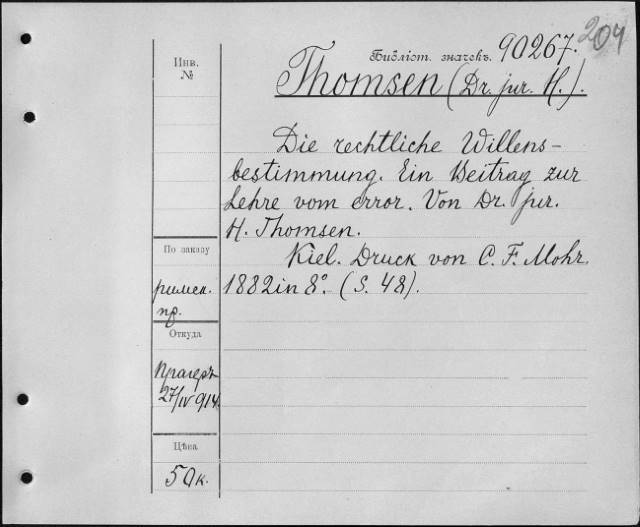 204
Библіот. значекъ. 90267.
Инв.
№
Thomsen (Dr. jur. H.).
Die rechtliche Willens-
bestimmung. Ein Beitrag zur
Lehre vom error. Von Dr. jur.
H. Thomsen.
Kiel. Druck von C. F. Mohr.
1882 in 8°. (S. 48).
По заказу
римск.
пр.
Откуда
Прагеръ
27/IV 914.
Цѣна
50к.